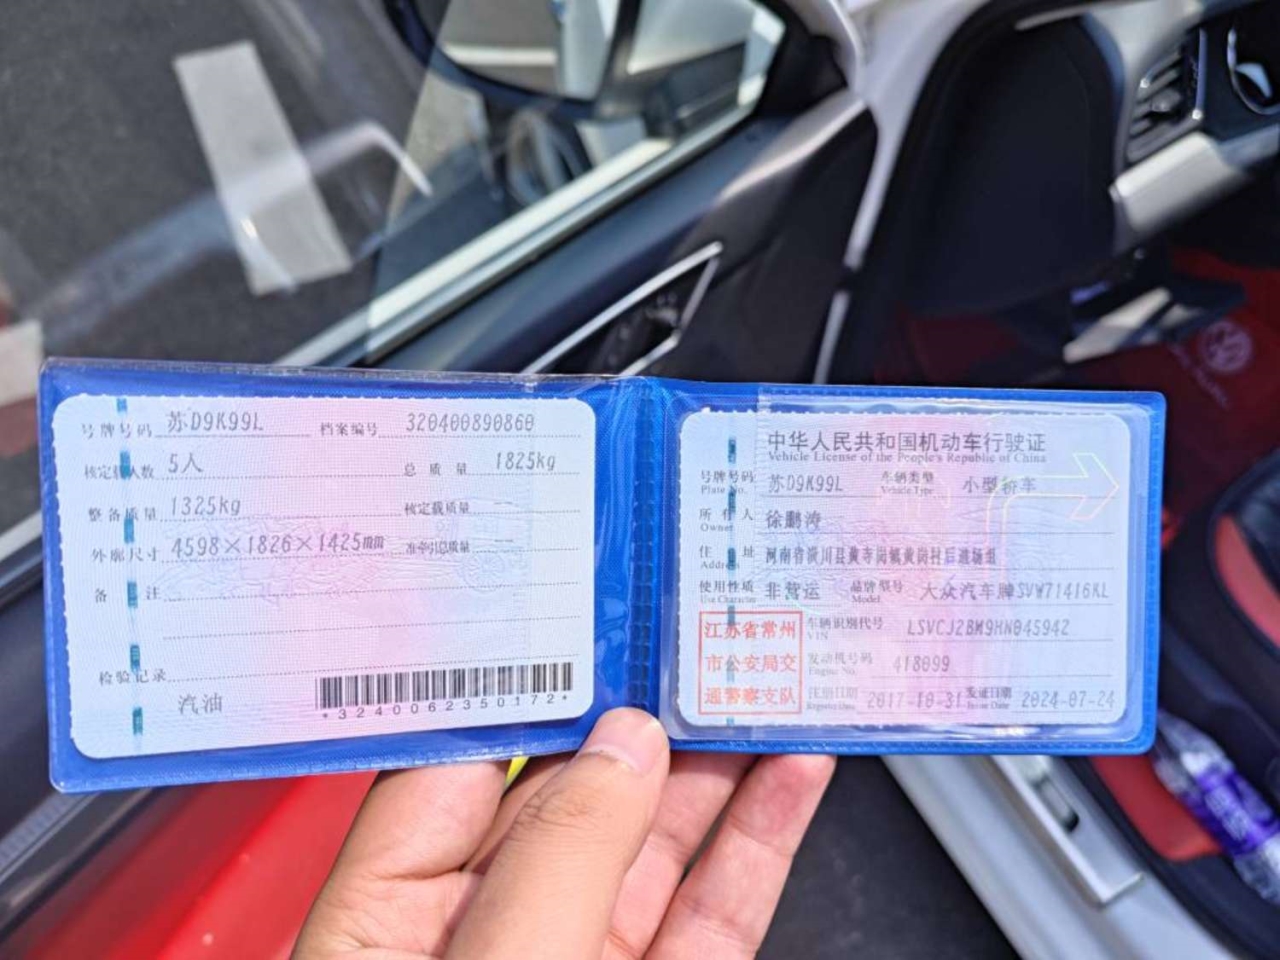 号牌号码 苏D9K99L 档案编号 320400890860
核定载人数 5人 总质量 1825kg
整备质量 1325kg 核定载质量 --
外廓尺寸 4598×1826×1425mm 准牵引总质量 --
备注
检验记录
汽油
*3240062350172*
中华人民共和国机动车行驶证
Vehicle License of the People's Republic of China
号牌号码 苏D9K99L 车辆类型 小型轿车
Plate No. Vehicle Type
所有人 徐鹏涛
Owner
住址 河南省潢川县黄寺岗镇黄岗村后进场组
Address
使用性质 非营运 品牌型号 大众汽车牌SVW71416KL
Use Character Model
江苏省常州
市公安局交
通警察支队
车辆识别代号 LSVCJ2BM9HN045942
VIN
发动机号码 418099
Engine No.
注册日期 2017-10-31 发证日期 2024-07-24
Register Date Issue Date